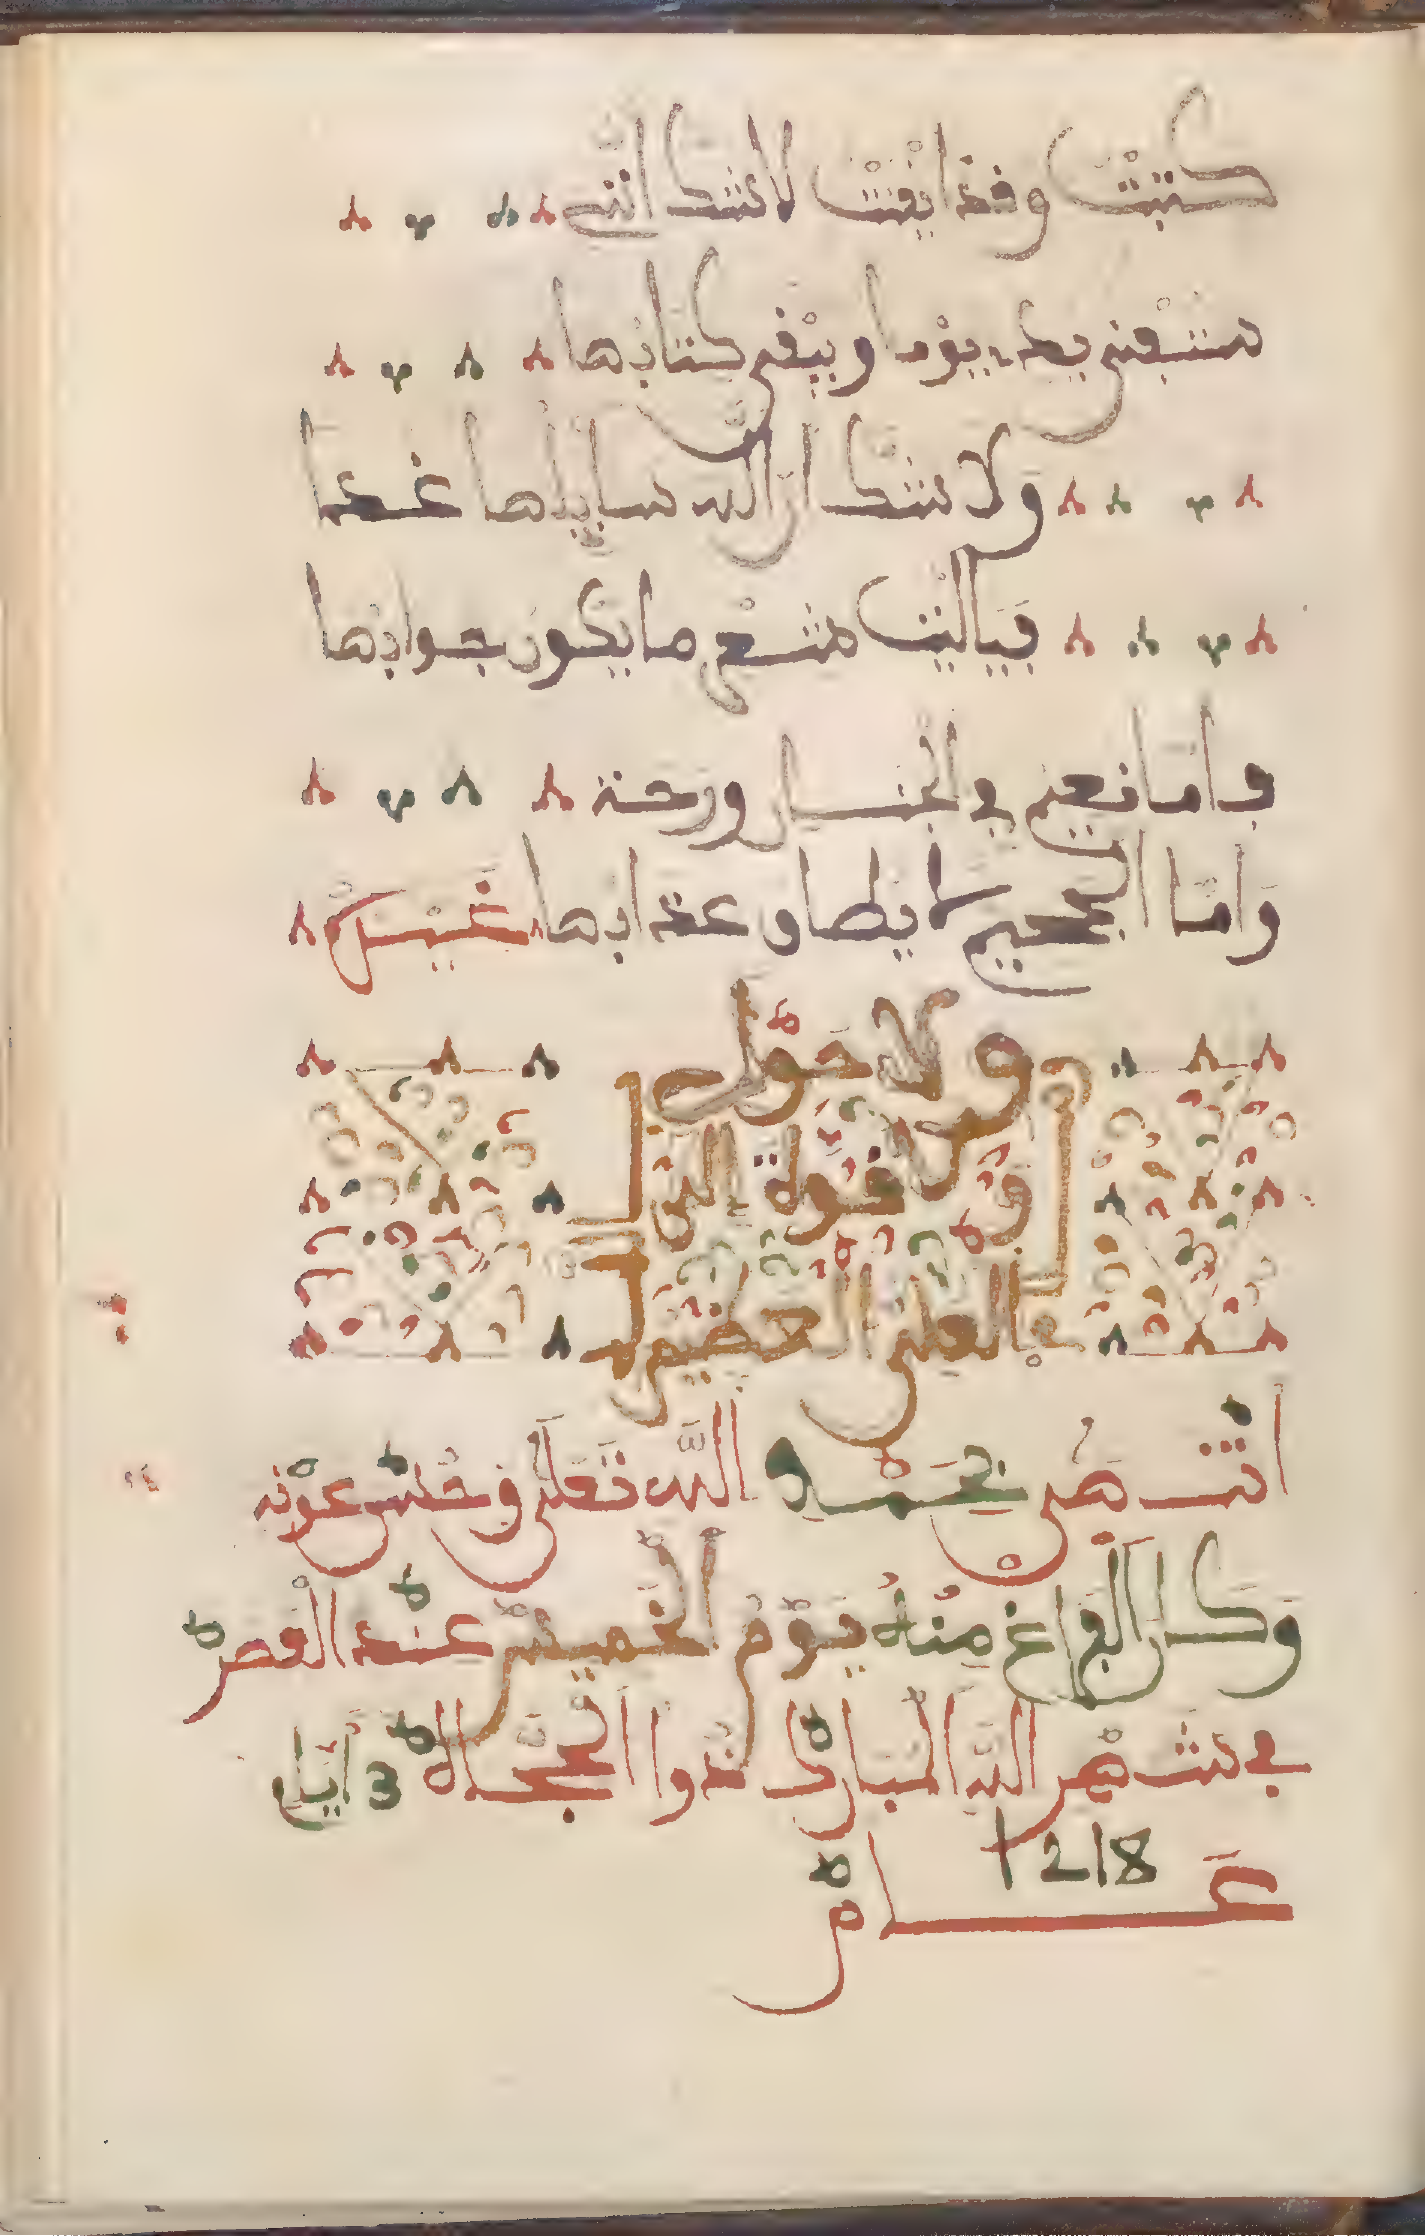 كتبت وقد ايقنت لا شك انني
ستبقى يدي يوما ويبقى كتابها
ولا شك ان الله سايلها غدا
فياليت شعري ما يكون جوابها
فاما نعيم في الجنان ورحة
واما الجحيم لا يطاو عذابها
ولا حول
ولا قوة الا
بالعلي العظيم
انتهى بحمد الله تعلى وحسن عونه
وكان الفراغ منه يوم الخميس عند العصر
في شهر الله المبارك ذوا الحجاة 3 ايام
عام 1218